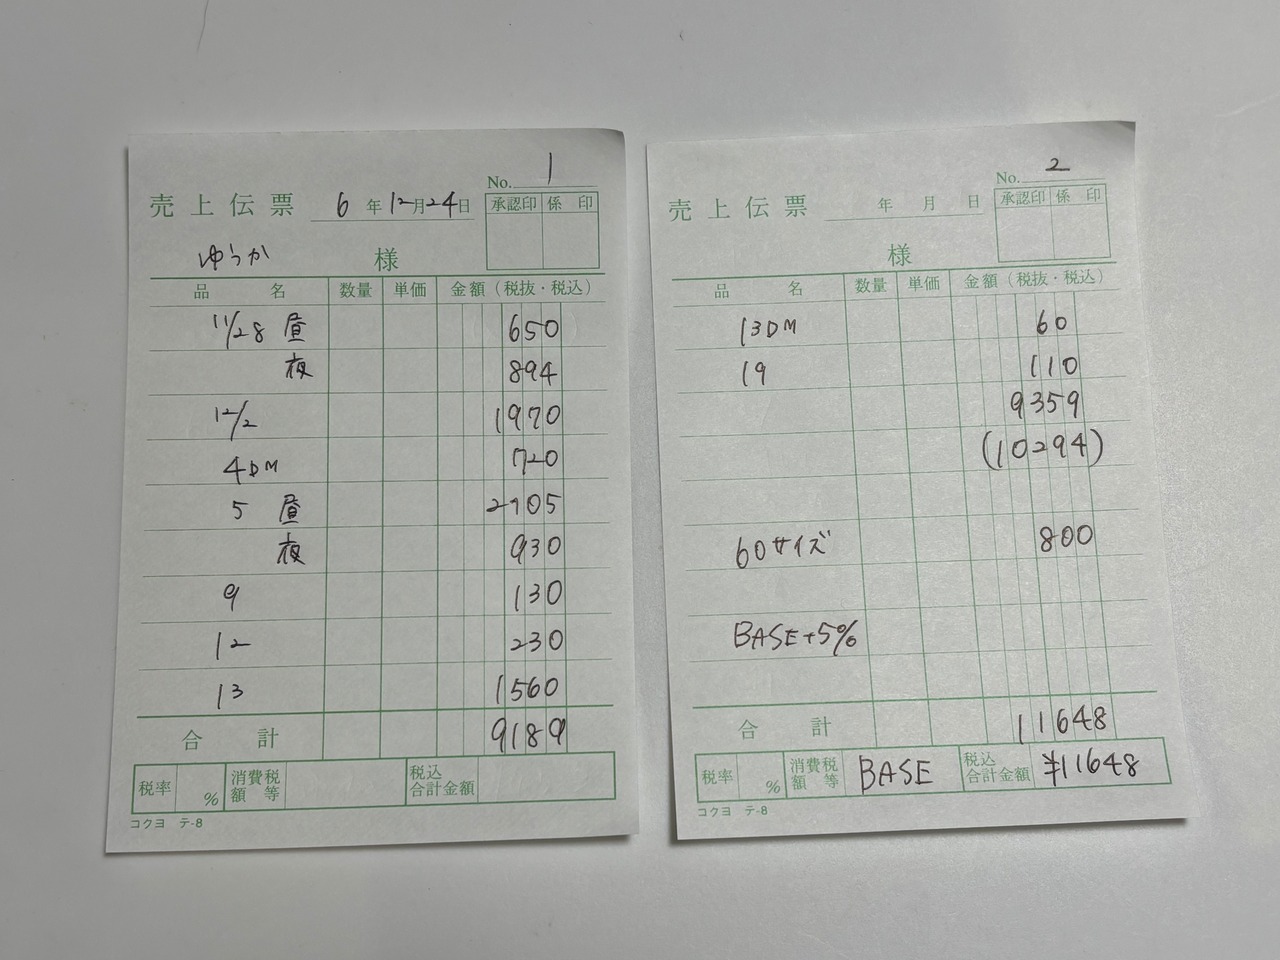 No. 1
売上伝票 6年12月24日
承認印 係印
ゆうか 様
品名 数量 単価 金額(税抜・税込)
11/28 昼 650
夜 894
12/2 1970
4DM 720
5 昼 2105
夜 930
9 130
12 230
13 1560
合計 9189
税率 % 消費税額等 税込合計金額
コクヨ テ-8
No. 2
売上伝票 年 月 日
承認印 係印
様
品名 数量 単価 金額(税抜・税込)
13DM 60
19 110
9359
(10294)
60サイズ 800
BASE+5%
合計 11648
税率 % 消費税額等 BASE 税込合計金額 ¥11648
コクヨ テ-8